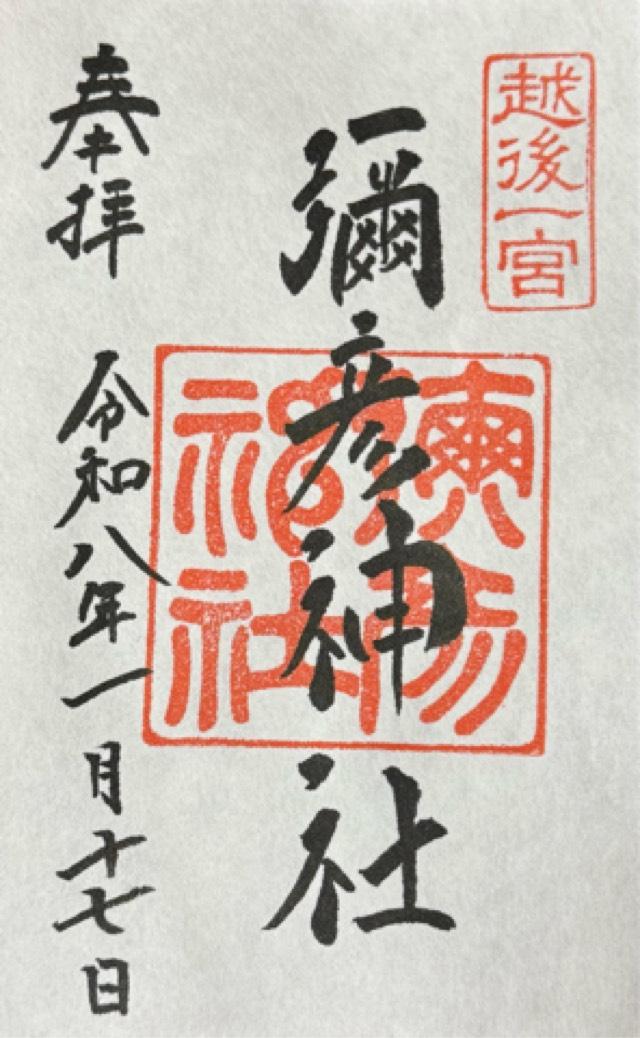 越後一宮
彌彦神社
彌彦神社
奉拝
令和八年一月十七日